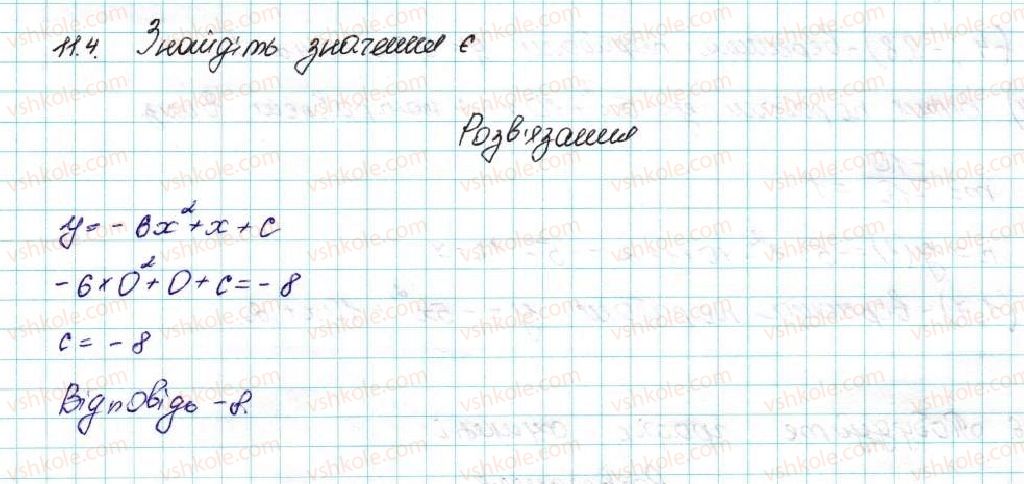 11.4. Знайдіть значення c
Розв'язання
y = - 6x² + x + c
- 6 × 0² + 0 + c = - 8
c = - 8
Відповідь -8.